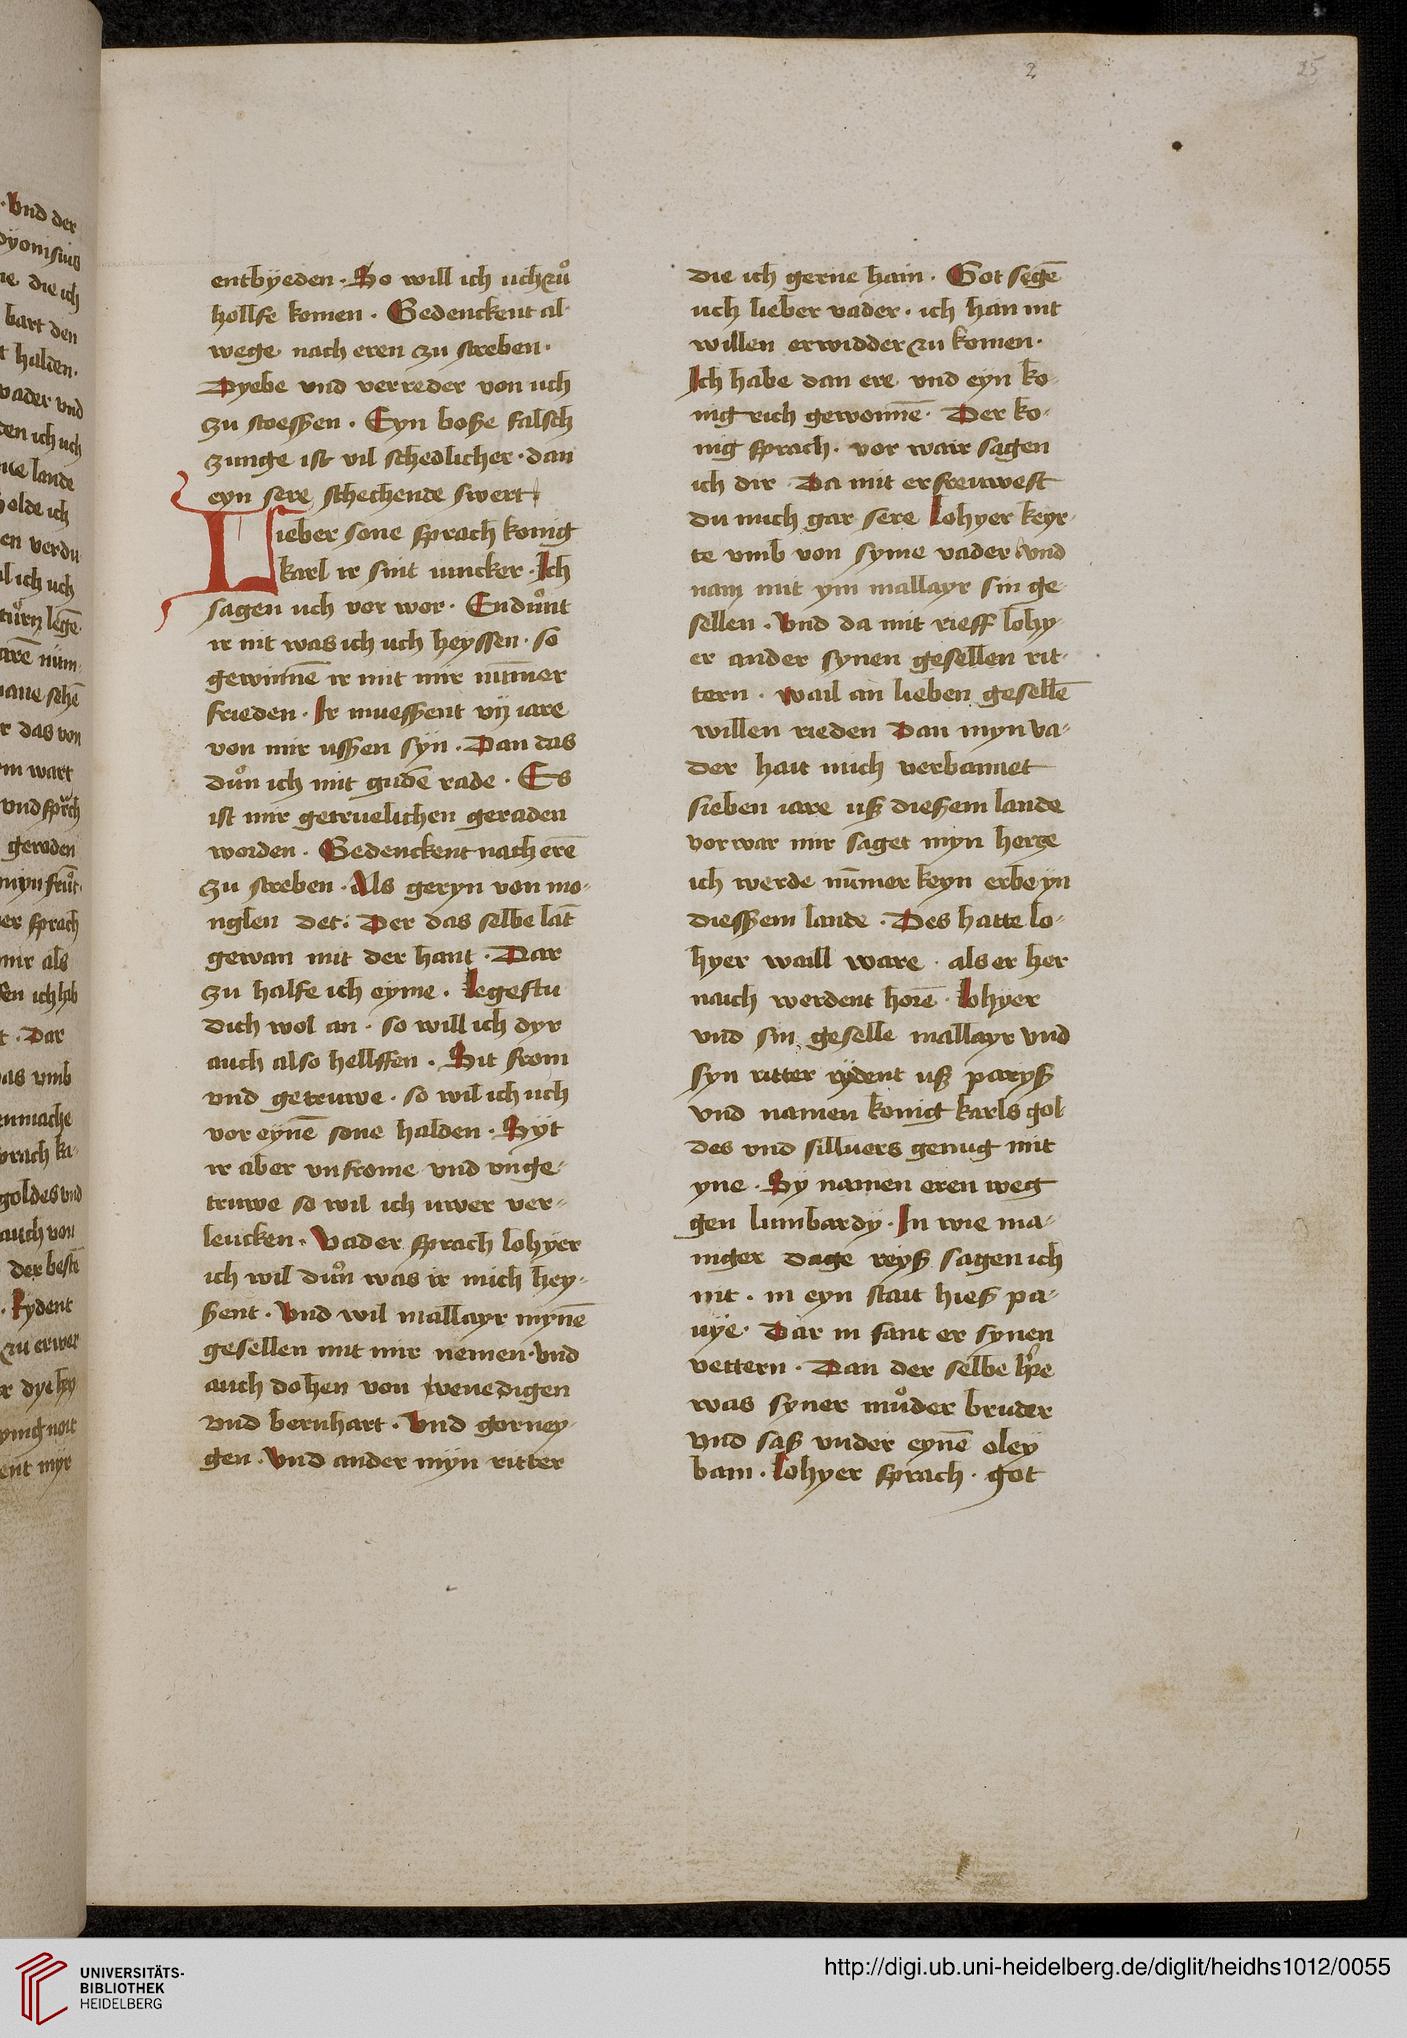 2
25
entbyeden · So will ich uch zuͦ
hollfe komen · Gedenckent al-
wege nach eren zu streben ·
Dyebe vnd verreder von uch
zu stoessen · Eyn boße falsch
zunge ist vil schedlicher · dan
eyn sere schechende swert
Lieber sone sprach konig
karl ir sint iuncker · Ich
sagen uch vor wor · Enduͦnt
ir nit was ich uch heyssen · so
gewin̄nē ir mit mir nūmer
frieden · Ir muessent vij iare
von mir ussen syn · Dan das
duͦn ich mit gudē rade · Es
ist mir getruelichen geraden
worden · Gedenckent nach erē
zu streben · Als geryn von mo-
nglen det · Der das selbe lāt
gewan mit der hant · Dar
zu halfe ich eyme · legestu
dich wol an · so will ich dyr
auch also hellffen · Sit from
vnd getruwe · so wil ich uch
vor eynē sone halden · Syt
ir aber vnfrome vnd vnge-
truwe so wil ich uwer ver-
leucken · Vader sprach lohyer
ich wil duͦn was ir mich hey-
ßent · Vnd wil mallayr mynē
gesellen mit mir nemen · vnd
auch dohen von wenedigen
vnd bernhart · Vnd gorney-
gen · Vnd ander myn ritter
die ich gerne hain · Got segē
uch lieber vader · ich han nit
willen erwidder zu komen ·
Ich habe dan ere vnd eyn ko-
nigrich gewonnē · Der ko-
nig sprach · vor wair sagen
ich dir · Da mit erfreuwest
du mich gar sere lohyer keyr-
te vmb von syme vader vnd
nam mit ym mallayr sin ge-
sellen · Vnd da mit rieff lohy-
er ander synen gesellen rit-
tern · wail an lieben gesellē
willen rieden Dan myn va-
der hait mich verbannet
sieben iare uß dießem lande
vorwar mir saget myn hertze
ich werde nūmer keyn erbe yn
diessem lande · Des hatte lo-
hyer waill ware · als er her
naich werdent horē · lohyer
vnd sin geselle mallayr vnd
syn ritter rydent uß paryß
vnd namen konig karls gol-
des vnd silluers genug mit
yne · Sy namen eren weg
gen lumbardy · In wie ma-
niger dage reyß sagen ich
nit · in eyn stait hieß pa-
uye · Dar in fant er synen
vettern · Dan der selbe h͛re
was syner muͦder bruder
vnd saß vnder eynē oley
bam · lohyer sprach · got
UNIVERSITÄTS-
BIBLIOTHEK
HEIDELBERG
http://digi.ub.uni-heidelberg.de/diglit/heidhs1012/0055